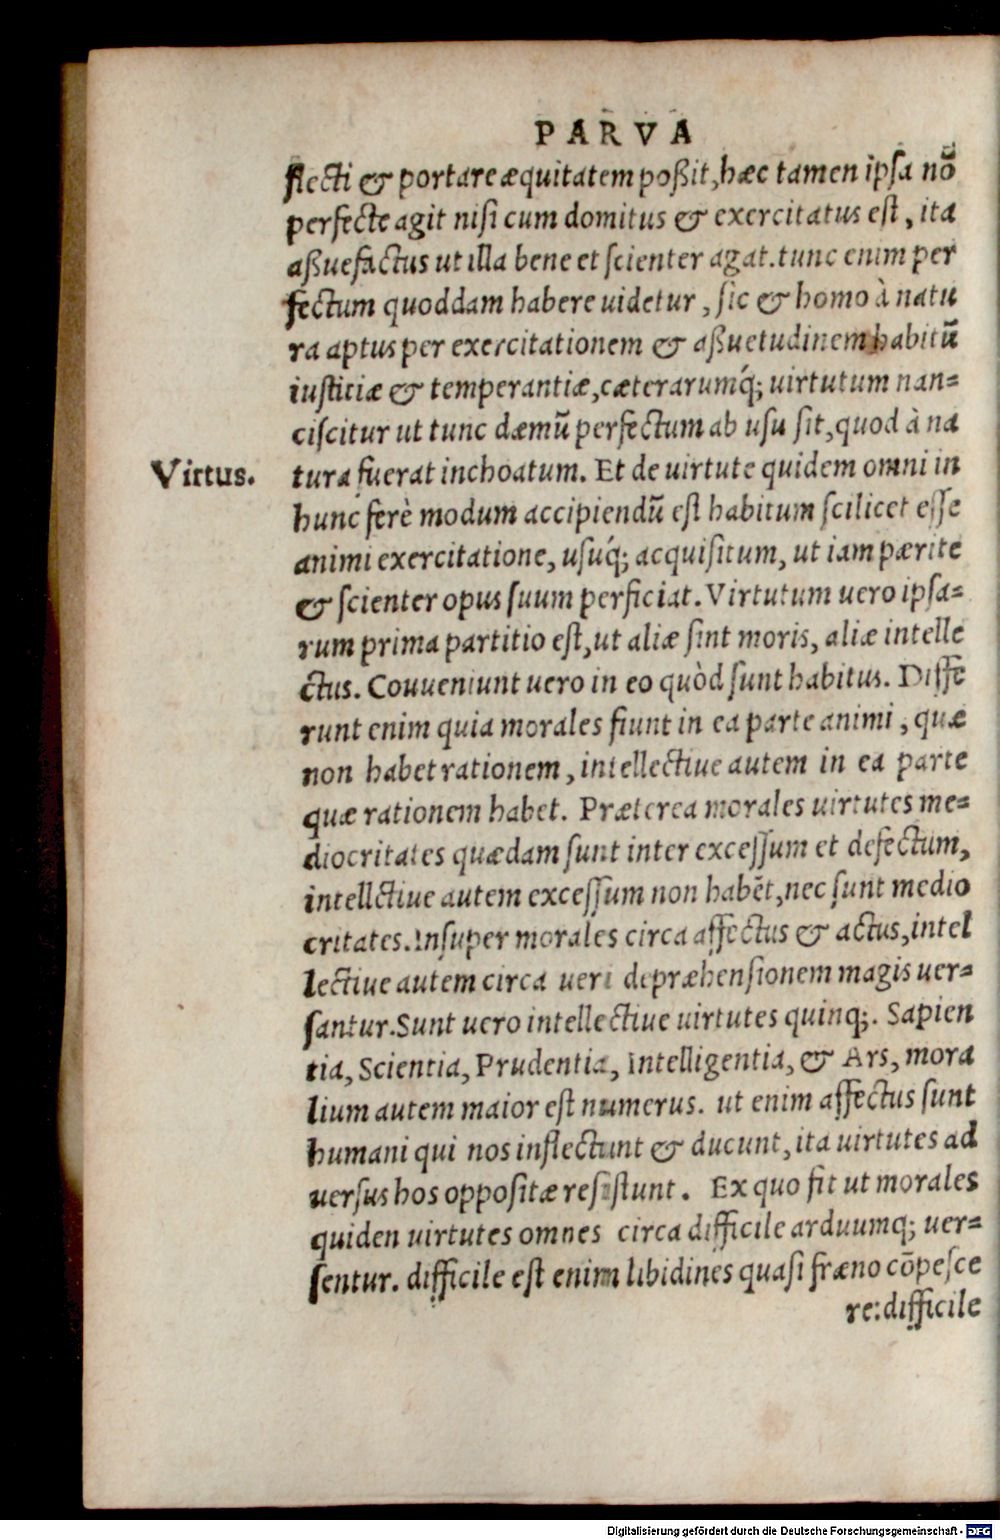 PARVA
flecti & portare æquitatem poßit, hæc tamen ipsa nõ
perfecte agit nisi cum domitus & exercitatus est, ita
aßuefactus ut illa bene et scienter agat. tunc enim per
fectum quoddam habere uidetur, sic & homo à natu
ra aptus per exercitationem & aßuetudinem habitũ
iusticiæ & temperantiæ, cæterarumq́; uirtutum nan=
ciscitur ut tunc dæmũ perfectum ab usu sit, quod à na
Virtus.
tura fuerat inchoatum. Et de uirtute quidem omni in
hunc ferè modum accipiendũ est habitum scilicet esse
animi exercitatione, usuq́; acquisitum, ut iam pærite
& scienter opus suum perficiat. Virtutum uero ipsa=
rum prima partitio est, ut aliæ sint moris, aliæ intelle
ctus. Couueniunt uero in eo quòd sunt habitus. Diffe
runt enim quia morales fiunt in ea parte animi, quæ
non habet rationem, intellectiue autem in ea parte
quæ rationem habet. Præterea morales uirtutes me=
diocritates quædam sunt inter excessum et defectum,
intellctiue autem excessum non habẽt, nec sunt medio
critates. Insuper morales circa affectus & actus, intel
lectiue autem circa ueri depræhensionem magis uer=
santur. Sunt uero intellectiue uirtutes quinq;. Sapien
tia, Scientia, Prudentia, Intelligentia, & Ars, mora
lium autem maior est numerus. ut enim affectus sunt
humani qui nos inflectunt & ducunt, ita uirtutes ad
uersus hos oppositæ resistunt. Ex quo fit ut morales
quiden uirtutes omnes circa difficile arduumq; uer=
sentur. difficile est enim libidines quasi fræno cõpesce
re: difficile
Digitalisierung gefördert durch die Deutsche Forschungsgemeinschaft - DFG